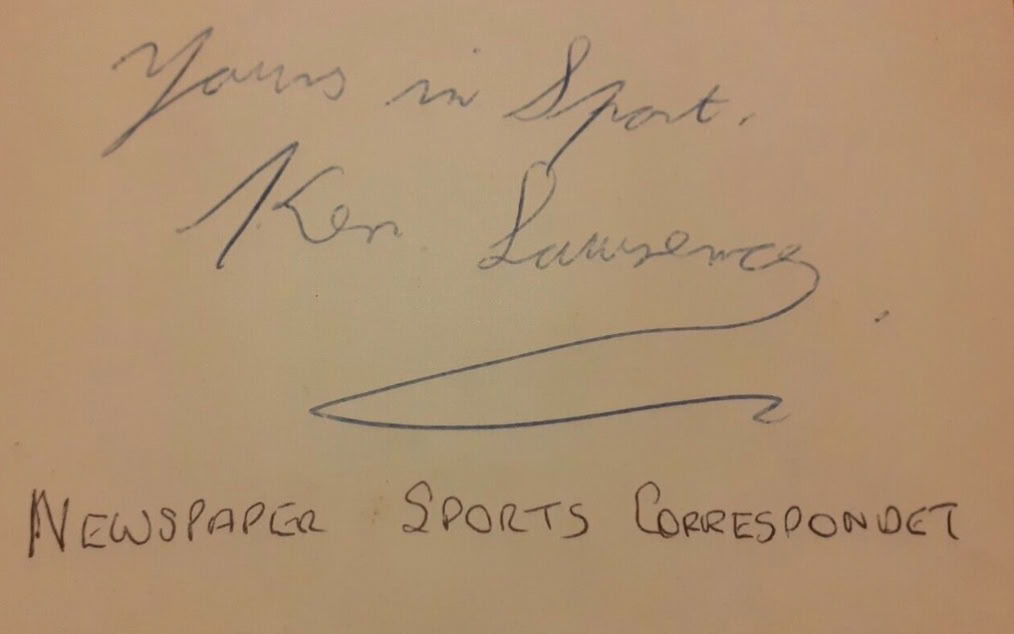 Yours in Sport.
Ken Lawrence.
NEWSPAPER SPORTS CORRESPONDET